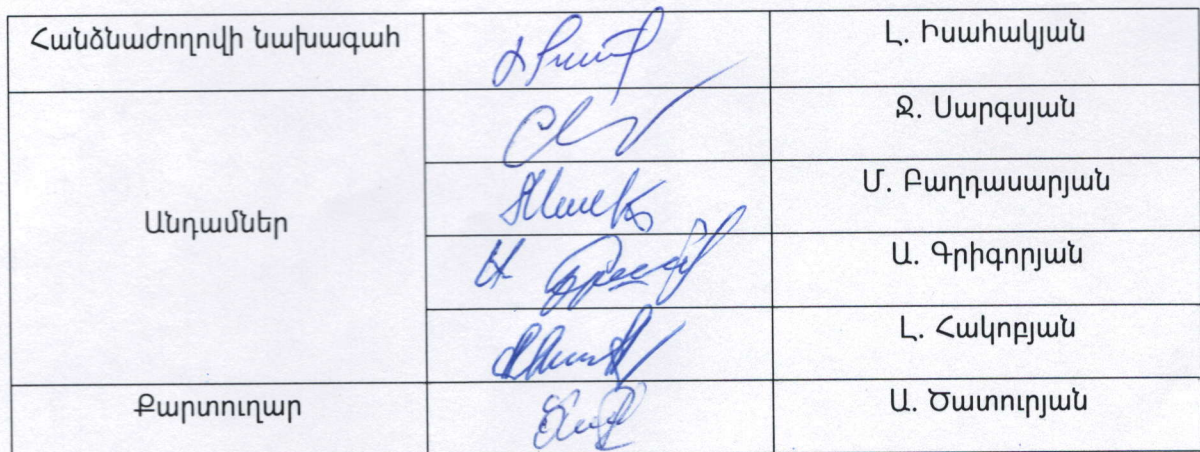 Հանձնաժողովի նախագահ
Լ. Իսահակյան
Անդամներ
Ջ. Սարգսյան
Մ. Բաղդասարյան
Ա. Գրիգորյան
Լ. Հակոբյան
Քարտուղար
Ա. Ծատուրյան